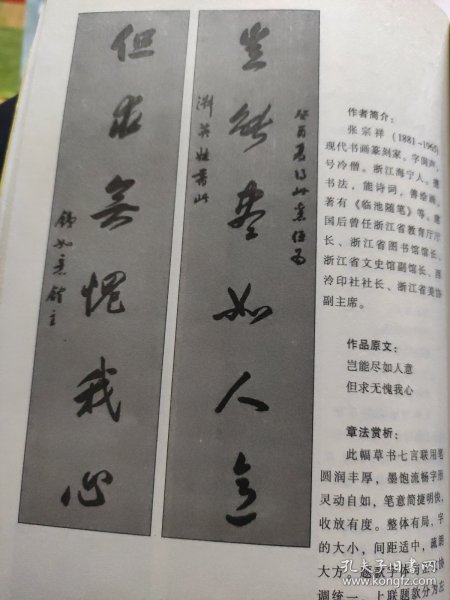 岂能尽如人意
但求无愧我心
作者简介：
张宗祥（1881-1965）
现代书画篆刻家。字阆声，
号冷僧。浙江海宁人。
书法，能诗词，善绘画。
著有《临池随笔》等。
国后曾任浙江省教育厅厅
长、浙江省图书馆馆长、
浙江省文史馆副馆长、西
泠印社社长、浙江省美协
副主席。
作品原文：
岂能尽如人意
但求无愧我心
章法赏析：
此幅草书七言联用笔
圆润丰厚，墨饱流畅字形
灵动自如，笔意简捷明快，
收放有度。整体布局，字
的大小，间距适中，疏朗
大方。题款字体与正文协
调统一，上联题款分为左
孔夫子旧书网
kongfz.com